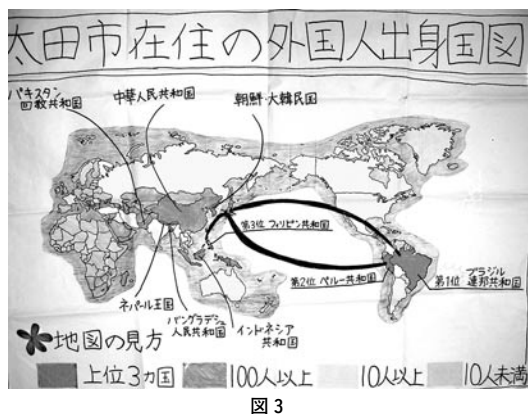 太田市在住の外国人出身国図
パキスタン
回教共和国
中華人民共和国
朝鮮・大韓民国
第3位 フィリピン共和国
第2位 ペルー共和国
第1位 ブラジル
連邦共和国
ネパール王国
バングラデシュ
人民共和国
インドネシア
共和国
地図の見方
上位3カ国
100人以上
10人以上
10人未満
図3